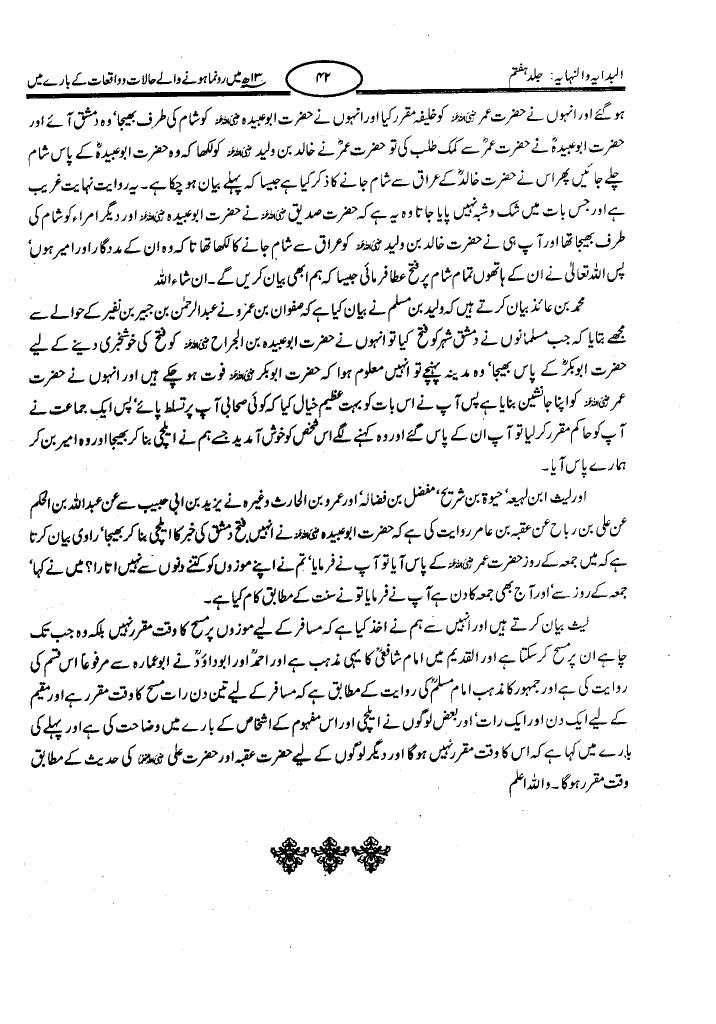 البدایہ والنہایہ: جلد ہفتم
۴۲
۱۳ھ میں رونما ہونے والے حالات و واقعات کے بارے میں
ہو گئے اور انہوں نے حضرت عمر رضی اللہ عنہ کو خلیفہ مقرر کیا اور انہوں نے حضرت ابوعبیدہ رضی اللہ عنہ کو شام کی طرف بھیجا‘ وہ دمشق آئے اور
حضرت ابوعبیدہؓ نے حضرت عمرؓ سے کمک طلب کی تو حضرت عمرؓ نے خالد بن ولید رضی اللہ عنہ کو لکھا کہ وہ حضرت ابوعبیدہؓ کے پاس شام
چلے جائیں پھر اس نے حضرت خالدؓ کے عراق سے شام جانے کا ذکر کیا ہے جیسا کہ پہلے بیان ہو چکا ہے۔ یہ روایت نہایت غریب
ہے اور جس بات میں شک و شبہ نہیں پایا جاتا وہ یہ ہے کہ حضرت صدیق رضی اللہ عنہ نے حضرت ابوعبیدہ رضی اللہ عنہ اور دیگر امراء کو شام کی
طرف بھیجا تھا اور آپ ہی نے حضرت خالد بن ولید رضی اللہ عنہ کو عراق سے شام جانے کا لکھا تھا تا کہ وہ ان کے مددگار اور امیر ہوں‘
پس اللہ تعالیٰ نے ان کے ہاتھوں تمام شام پر فتح عطا فرمائی جیسا کہ ہم ابھی بیان کریں گے۔ ان شاء اللہ
محمد بن عائذ بیان کرتے ہیں کہ ولید بن مسلم نے بیان کیا ہے کہ صفوان بن عمرو نے عبدالرحمٰن بن جبیر بن نفیر کے حوالے سے
مجھے بتایا کہ جب مسلمانوں نے دمشق شہر کو فتح کیا تو انہوں نے حضرت ابوعبیدہ بن الجراح رضی اللہ عنہ کو فتح کی خوشخبری دینے کے لیے
حضرت ابوبکرؓ کے پاس بھیجا‘ وہ مدینہ پہنچے تو انہیں معلوم ہوا کہ حضرت ابوبکر رضی اللہ عنہ فوت ہو چکے ہیں اور انہوں نے حضرت
عمر رضی اللہ عنہ کو اپنا جانشین بنایا ہے پس آپ نے اس بات کو بہت عظیم خیال کیا کہ کوئی صحابی آپ پر تسلط پائے‘ پس ایک جماعت نے
آپ کو حاکم مقرر کر لیا تو آپ ان کے پاس گئے اور وہ کہنے لگے اس شخص کو خوش آمدید جسے ہم نے ایلچی بنا کر بھیجا اور وہ امیر بن کر
ہمارے پاس آیا۔
اور لیث ابن لہیعہ‘ حیوۃ بن شریح‘ مفضل بن فضالہ‘ اور عمرو بن الحارث وغیرہ نے یزید بن ابی حبیب سے عن عبداللہ بن الحکم
عن علی بن رباح عن عقبہ بن عامر روایت کی ہے کہ حضرت ابوعبیدہ رضی اللہ عنہ نے انہیں فتح دمشق کی خبر کا ایلچی بنا کر بھیجا‘ راوی بیان کرتا
ہے کہ میں جمعہ کے روز حضرت عمر رضی اللہ عنہ کے پاس آیا تو آپ نے فرمایا‘ تم نے اپنے موزوں کو کتنے دنوں سے نہیں اتارا؟ میں نے کہا‘
جمعہ کے روز سے‘ اور آج بھی جمعہ کا دن ہے آپ نے فرمایا تو نے سنت کے مطابق کام کیا ہے۔
لیث بیان کرتے ہیں اور انہیں سے ہم نے اخذ کیا ہے کہ مسافر کے لیے موزوں پر مسح کا وقت مقرر نہیں بلکہ وہ جب تک
چاہے ان پر مسح کر سکتا ہے اور القدیم میں امام شافعیؒ کا یہی مذہب ہے اور احمدؒ اور ابوداؤدؒ نے ابوعمارہ سے مرفوعاً اس قسم کی
روایت کی ہے اور جمہور کا مذہب امام مسلمؒ کی روایت کے مطابق ہے کہ مسافر کے لیے تین دن رات مسح کا وقت مقرر ہے اور مقیم
کے لیے ایک دن اور ایک رات‘ اور بعض لوگوں نے ایلچی اور اس مفہوم کے اشخاص کے بارے میں وضاحت کی ہے اور پہلے کی
بارے میں کہا ہے کہ اس کا وقت مقرر نہیں ہوگا اور دیگر لوگوں کے لیے حضرت عقبہ اور حضرت علی رضی اللہ عنہ کی حدیث کے مطابق
وقت مقرر ہوگا۔ واللہ اعلم